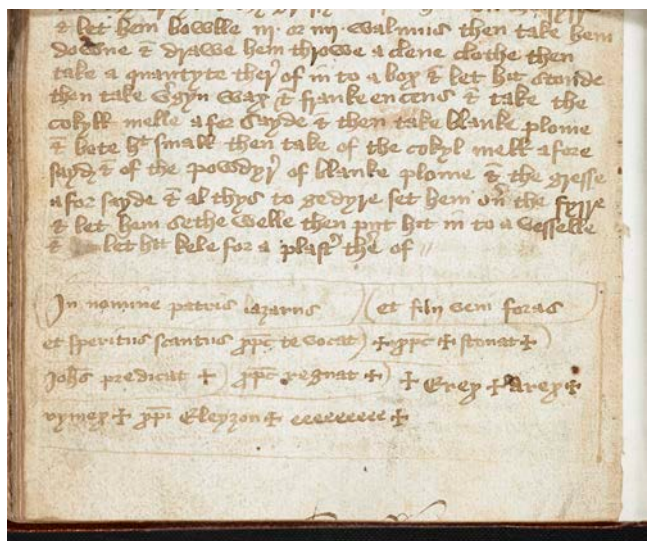 & let hem bowlle iij or iiij walmus then take hem
downe & drawe hem throwe a clene clothe then
take a quantyte ther of in to a box & let hit stonde
then take v'gyn wax & frankeencens & take the
cokyll melle a for sayde & then take blanke plome
& bete ht small then take of the cokyl mell a fore
sayd & of the powdyr of blanke plome & the gresse
a for sayde & al thys to gedyre set hem on the fyrre
& let hem sethe welle then put hit in to a vesselle
& let hit kele for a plast' ther of //
In nomine patris lazarus et filii veni foras
et speritus scantus xpc te vocat + xpc + stonat +
Johes predicat + xpc regnat + + Erex + arex +
rymex + xpi Eleyzon + eeeeeeeee +